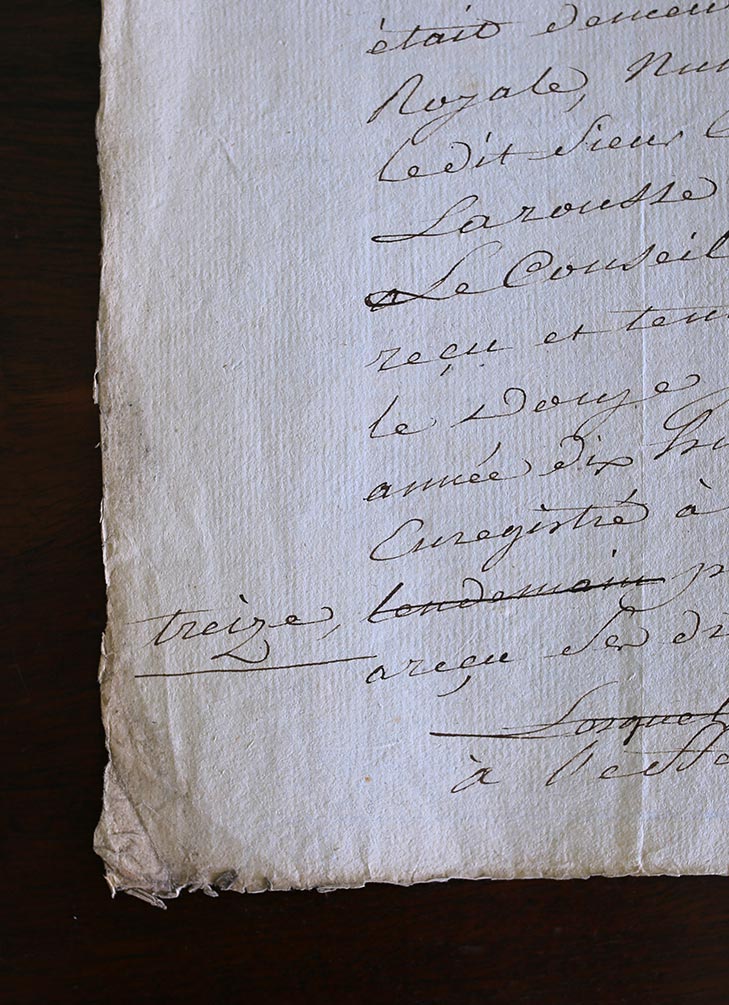 était demeu
Royale, Nu
ledit Sieur
Larousse
Le Conseil
reçu et ten
le Douze
année dix hu
Enregistré à
treize, lendemain p
a reçu Ses d
à